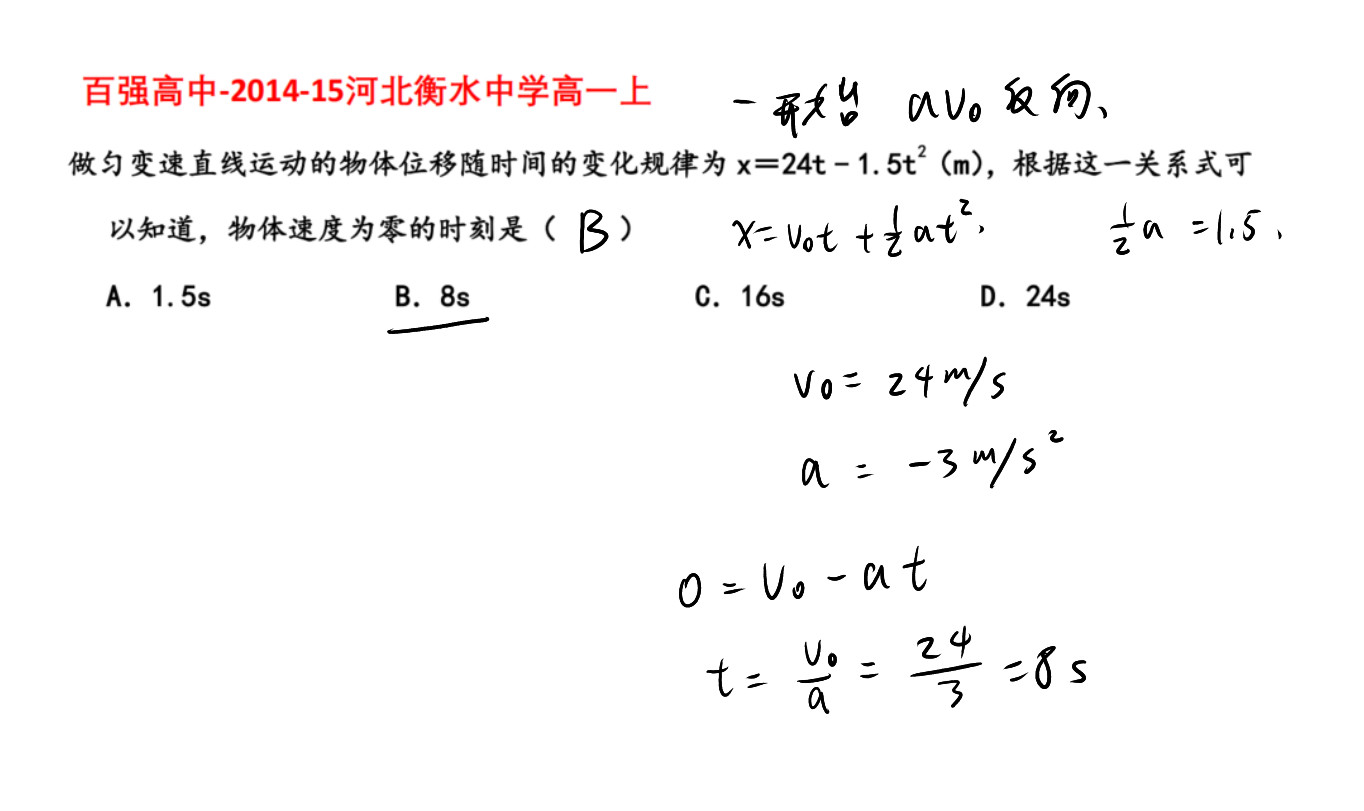 百强高中-2014-15河北衡水中学高一上
一开始 a v₀ 反向、
做匀变速直线运动的物体位移随时间的变化规律为 x＝24t－1.5t²（m），根据这一关系式可
以知道，物体速度为零的时刻是（ B ）
x = v₀t + ½at²,
½a = 1.5、
A. 1.5s B. 8s C. 16s D. 24s
v₀ = 24 m/s
a = -3 m/s²
0 = v₀ - at
t = v₀/a = 24/3 = 8 s